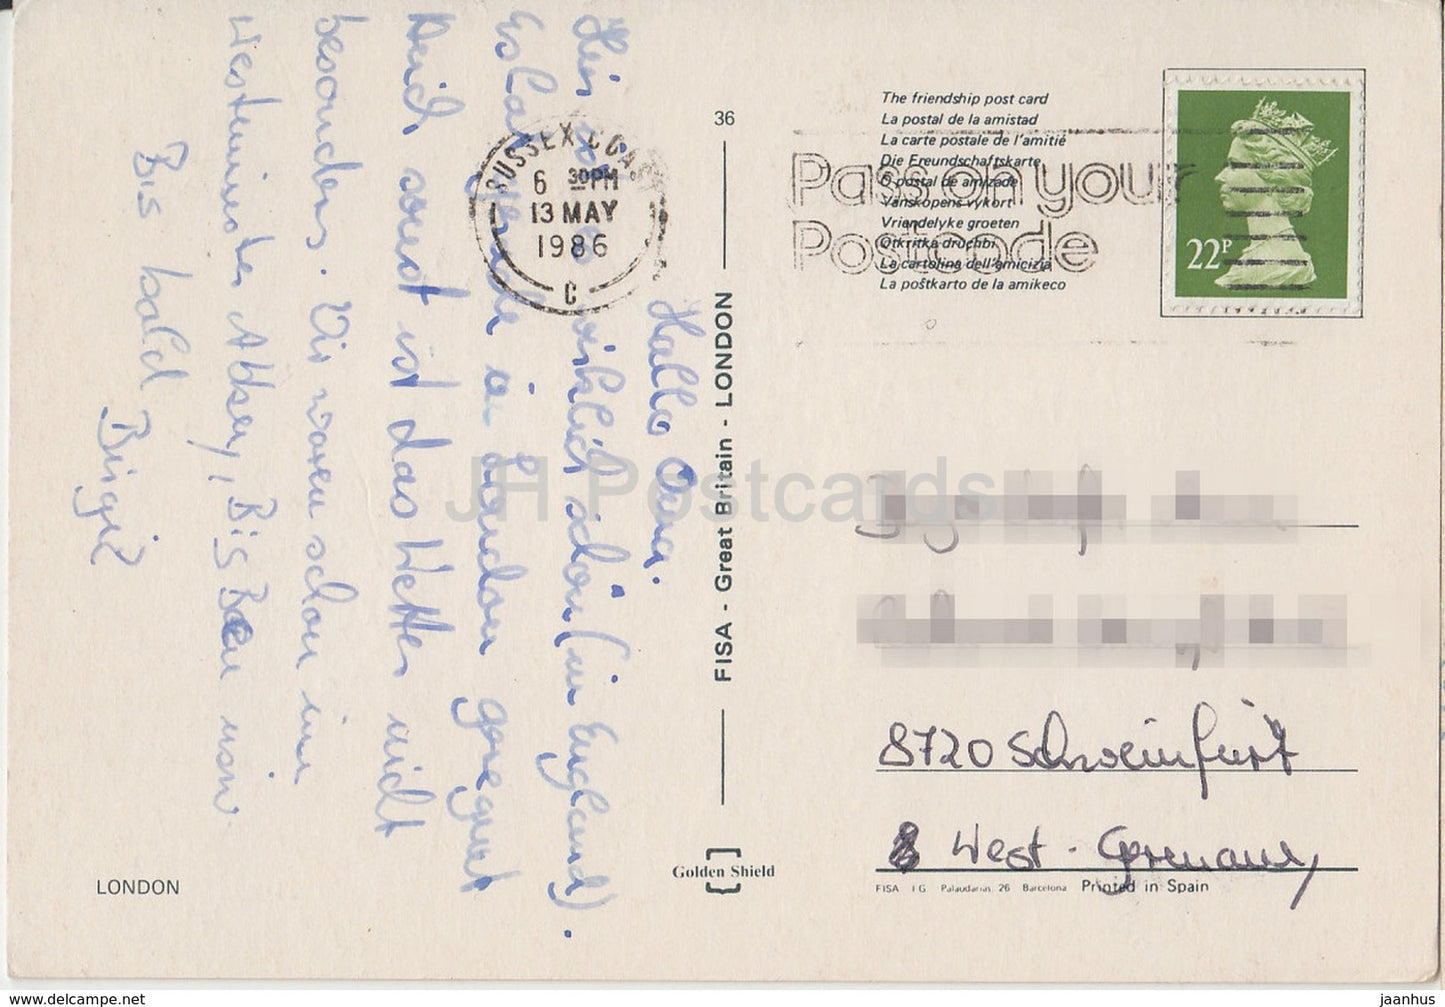 Hallo Oma.
Hier ist es wirklich schön (in England).
Es hat gerade in London geregnet
Auch sonst ist das Wetter nicht
besonders. Wir waren schon in
Westminster Abbey, Big Ben usw.
Bis bald
Birgit
LONDON
36
FISA - Great Britain - LONDON
Golden Shield
SUSSEX COAST
6 30PM
13 MAY
1986
C
The friendship post card
La postal de la amistad
La carte postale de l'amitié
Die Freundschaftskarte
O postal de amizade
Vänskapens vykort
Vriendelyke groeten
Otkritka druchbi
La cartolina dell'amicizia
La poŝtkarto de la amikeco
Pass on your
Postcode
22P
8720 Schweinfurt
West-Germany
FISA I.G. Palaudarias, 26 Barcelona Printed in Spain
JH Postcards
www.delcampe.net
jaanhus